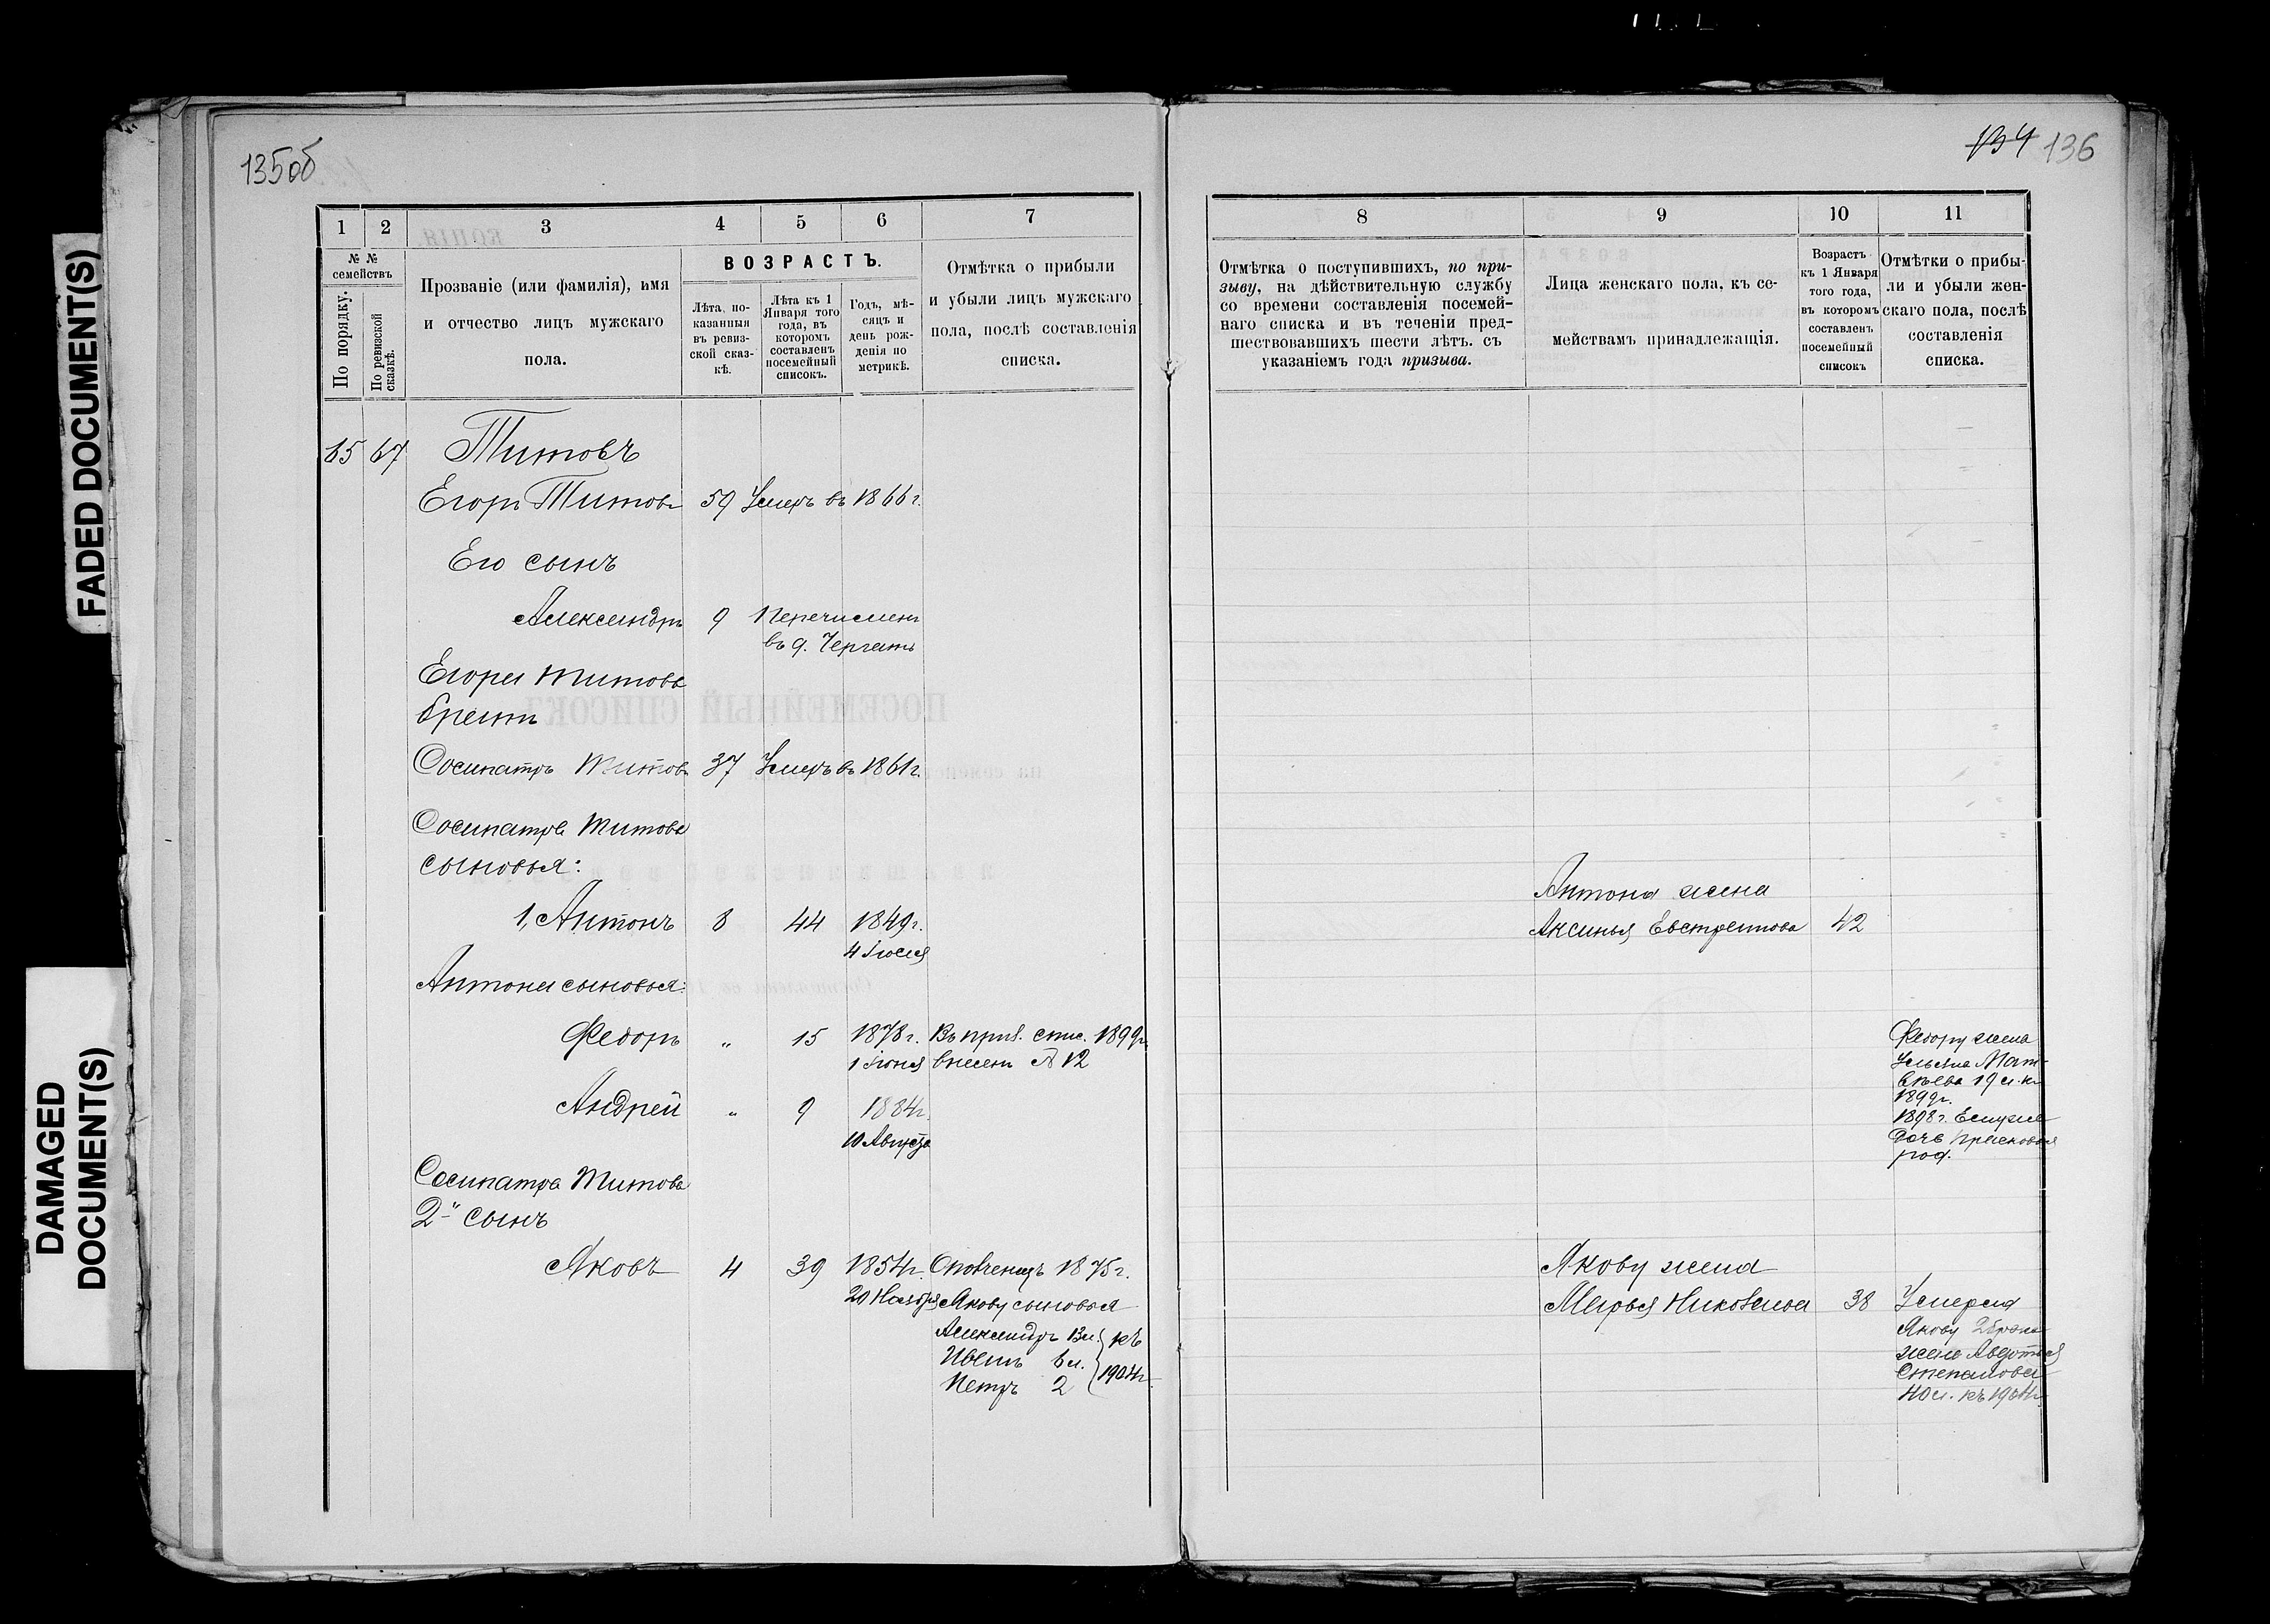 FADED DOCUMENT(S)
DAMAGED
DOCUMENT(S)
135об
1
2
3
4
5
6
7
№ №
семействъ
По порядку.
По ревизской
сказкѣ.
Прозваніе (или фамилія), имя
и отчество лицъ мужскаго
пола.
ВОЗРАСТЪ.
Лѣта, по-
казанныя
въ ревиз-
ской сказ-
кѣ.
Лѣта къ 1
Января того
года, въ
которомъ
составленъ
посемейный
списокъ.
Годъ, мѣ-
сяцъ и
день рож-
денія по
метрикѣ.
Отмѣтка о прибыли
и убыли лицъ мужскаго
пола, послѣ составленія
списка.
65 67 Титовъ
Егоръ Титовъ 59 Умеръ въ 1866 г.
Его сынъ
Александръ 9 Перечисленъ
въ д.
Егора Титова
братъ
Сосипатръ Титовъ 37 Умеръ въ 1861 г.
Сосипатра Титова
сыновья:
1, Антонъ 8 44 1849 г.
4 Іюля
Антона сыновья:
Федоръ „ 15 1878 г. Въ приз. спис. 1899 г.
1 Іюня внесенъ № 12
Андрей „ 9 1884 г.
10 Августа
Сосипатра Титова
2й сынъ
Яковъ 4 39 1854 г. Ополченецъ 1875 г.
20 Ноября Якову сыновья
Александръ 13 л. къ
Иванъ 6 л.
Петръ 2 1904 г.
134 136
8
9
10
11
Отмѣтка о поступившихъ, по при-
зыву, на дѣйствительную службу
со времени составленія посемей-
наго списка и въ теченіи пред-
шествовавшихъ шести лѣтъ. съ
указаніемъ года призыва.
Лица женскаго пола, къ се-
мействамъ принадлежащія.
Возрастъ
къ 1 Января
того года,
въ которомъ
составленъ
посемейный
списокъ
Отмѣтки о прибы-
ли и убыли жен-
скаго пола, послѣ
составленія
списка.
Антона жена
Аксинья Евстратова 42
Федору жена
Ульяна Мат-
вѣева 19 л. къ
1899 г.
1898 г.
дочь Прасковья
род.
Якову жена
Марья Николаева 38 Умерла
Якову 2 брака
жена Авдотья
Степанова
40 л. къ 1904 г.